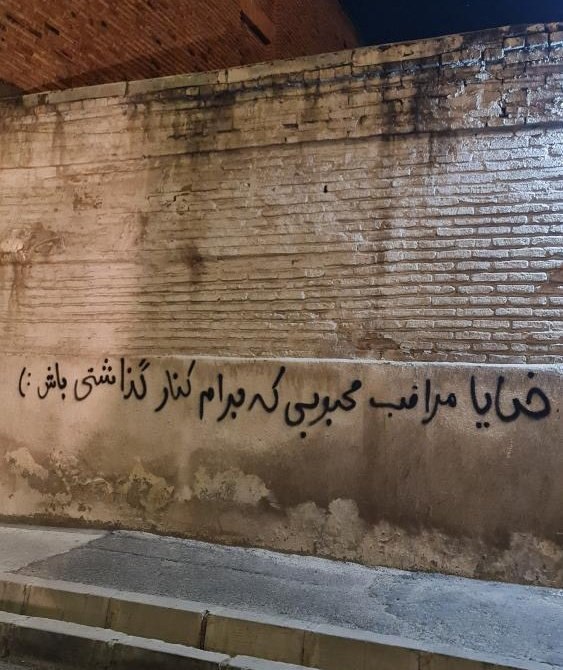 خدایا مراقب محبوبی که برام کنار گذاشتی باش :)